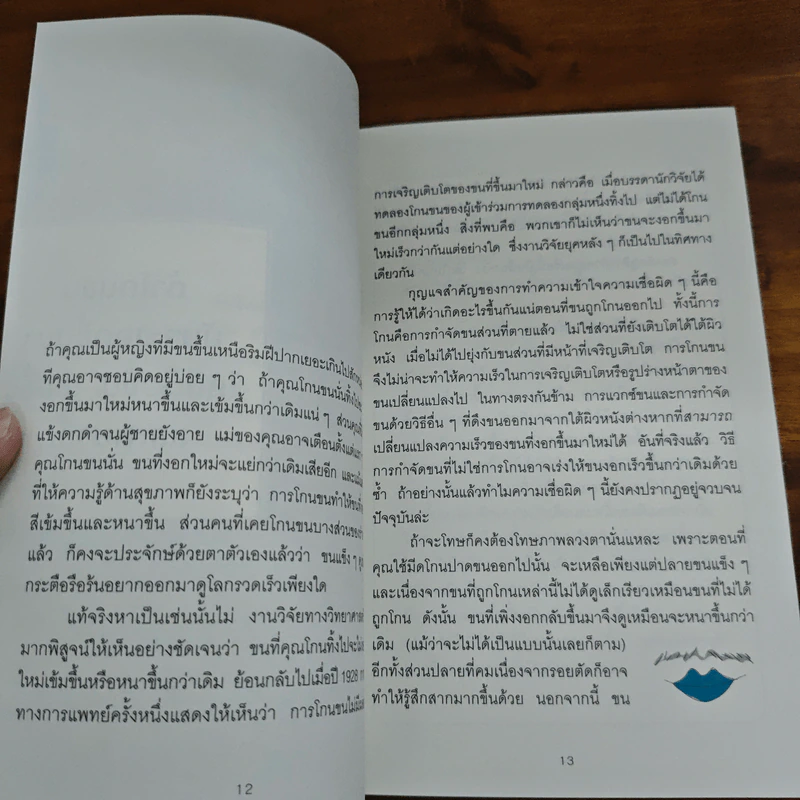 ถ้าคุณเป็นผู้หญิงที่มีขนขึ้นเหนือริมฝีปากเยอะเกินไป
ที่คุณอาจชอบคิดอยู่บ่อย ๆ ว่า ถ้าคุณโกนขนนั่น
งอกขึ้นมาใหม่หนาขึ้นและเข้มขึ้นกว่าเดิมแน่ ๆ
แข้งดกดำจนผู้ชายยังอาย แม่ของคุณอาจเตือนตั้งแต่
คุณโกนขนนั่น ขนที่งอกใหม่จะแย่กว่าเดิมเสียอีก
ที่ให้ความรู้ด้านสุขภาพก็ยังระบุว่า การโกนขนทำให้
สีเข้มขึ้นและหนาขึ้น ส่วนคนที่เคยโกนขนบางส่วน
แล้ว ก็คงจะประจักษ์ด้วยตาตัวเองแล้วว่า ขนแข็ง ๆ
กระตือรือร้นอยากออกมาดูโลกรวดเร็วเพียงใด
แท้จริงหาเป็นเช่นนั้นไม่ งานวิจัยทางวิทยาศาสตร์
มากพิสูจน์ให้เห็นอย่างชัดเจนว่า ขนที่คุณโกนทิ้งไป
ใหม่เข้มขึ้นหรือหนาขึ้นกว่าเดิม ย้อนกลับไปเมื่อปี 1928
ทางการแพทย์ครั้งหนึ่งแสดงให้เห็นว่า การโกนขน
12
การเจริญเติบโตของขนที่ขึ้นมาใหม่ กล่าวคือ เมื่อบรรดานักวิจัยได้
ทดลองโกนขนของผู้เข้าร่วมการทดลองกลุ่มหนึ่งทิ้งไป แต่ไม่ได้โกน
ขนอีกกลุ่มหนึ่ง สิ่งที่พบคือ พวกเขาก็ไม่เห็นว่าขนจะงอกขึ้นมา
ใหม่เร็วกว่ากันแต่อย่างใด ซึ่งงานวิจัยยุคหลัง ๆ ก็เป็นไปในทิศทาง
เดียวกัน
กุญแจสำคัญของการทำความเข้าใจความเชื่อผิด ๆ นี้คือ
การรู้ให้ได้ว่าเกิดอะไรขึ้นกันแน่ตอนที่ขนถูกโกนออกไป ทั้งนี้การ
โกนคือการกำจัดขนส่วนที่ตายแล้ว ไม่ใช่ส่วนที่ยังเติบโตได้ใต้ผิว
หนัง เมื่อไม่ได้ไปยุ่งกับขนส่วนที่มีหน้าที่เจริญเติบโต การโกนขน
จึงไม่น่าจะทำให้ความเร็วในการเจริญเติบโตหรือรูปร่างหน้าตาของ
ขนเปลี่ยนแปลงไป ในทางตรงกันข้าม การแวกซ์ขนและการกำจัด
ขนด้วยวิธีอื่น ๆ ที่ดึงขนออกมาจากใต้ผิวหนังต่างหากที่สามารถ
เปลี่ยนแปลงความเร็วของขนที่งอกขึ้นมาใหม่ได้ อันที่จริงแล้ว วิธี
การกำจัดขนที่ไม่ใช่การโกนอาจเร่งให้ขนงอกเร็วขึ้นกว่าเดิมด้วย
ซ้ำ ถ้าอย่างนั้นแล้วทำไมความเชื่อผิด ๆ นี้ยังคงปรากฏอยู่จวบจน
ปัจจุบันล่ะ
ถ้าจะโทษก็คงต้องโทษภาพลวงตานั่นแหละ เพราะตอนที่
คุณใช้มีดโกนปาดขนออกไปนั้น จะเหลือเพียงแต่ปลายขนแข็ง ๆ
และเนื่องจากขนที่ถูกโกนเหล่านี้ไม่ได้ดูเล็กเรียวเหมือนขนที่ไม่ได้
ถูกโกน ดังนั้น ขนที่เพิ่งงอกกลับขึ้นมาจึงดูเหมือนจะหนาขึ้นกว่า
เดิม (แม้ว่าจะไม่ได้เป็นแบบนั้นเลยก็ตาม)
อีกทั้งส่วนปลายที่คมเนื่องจากรอยตัดก็อาจ
ทำให้รู้สึกสากมากขึ้นด้วย นอกจากนี้ ขน
13